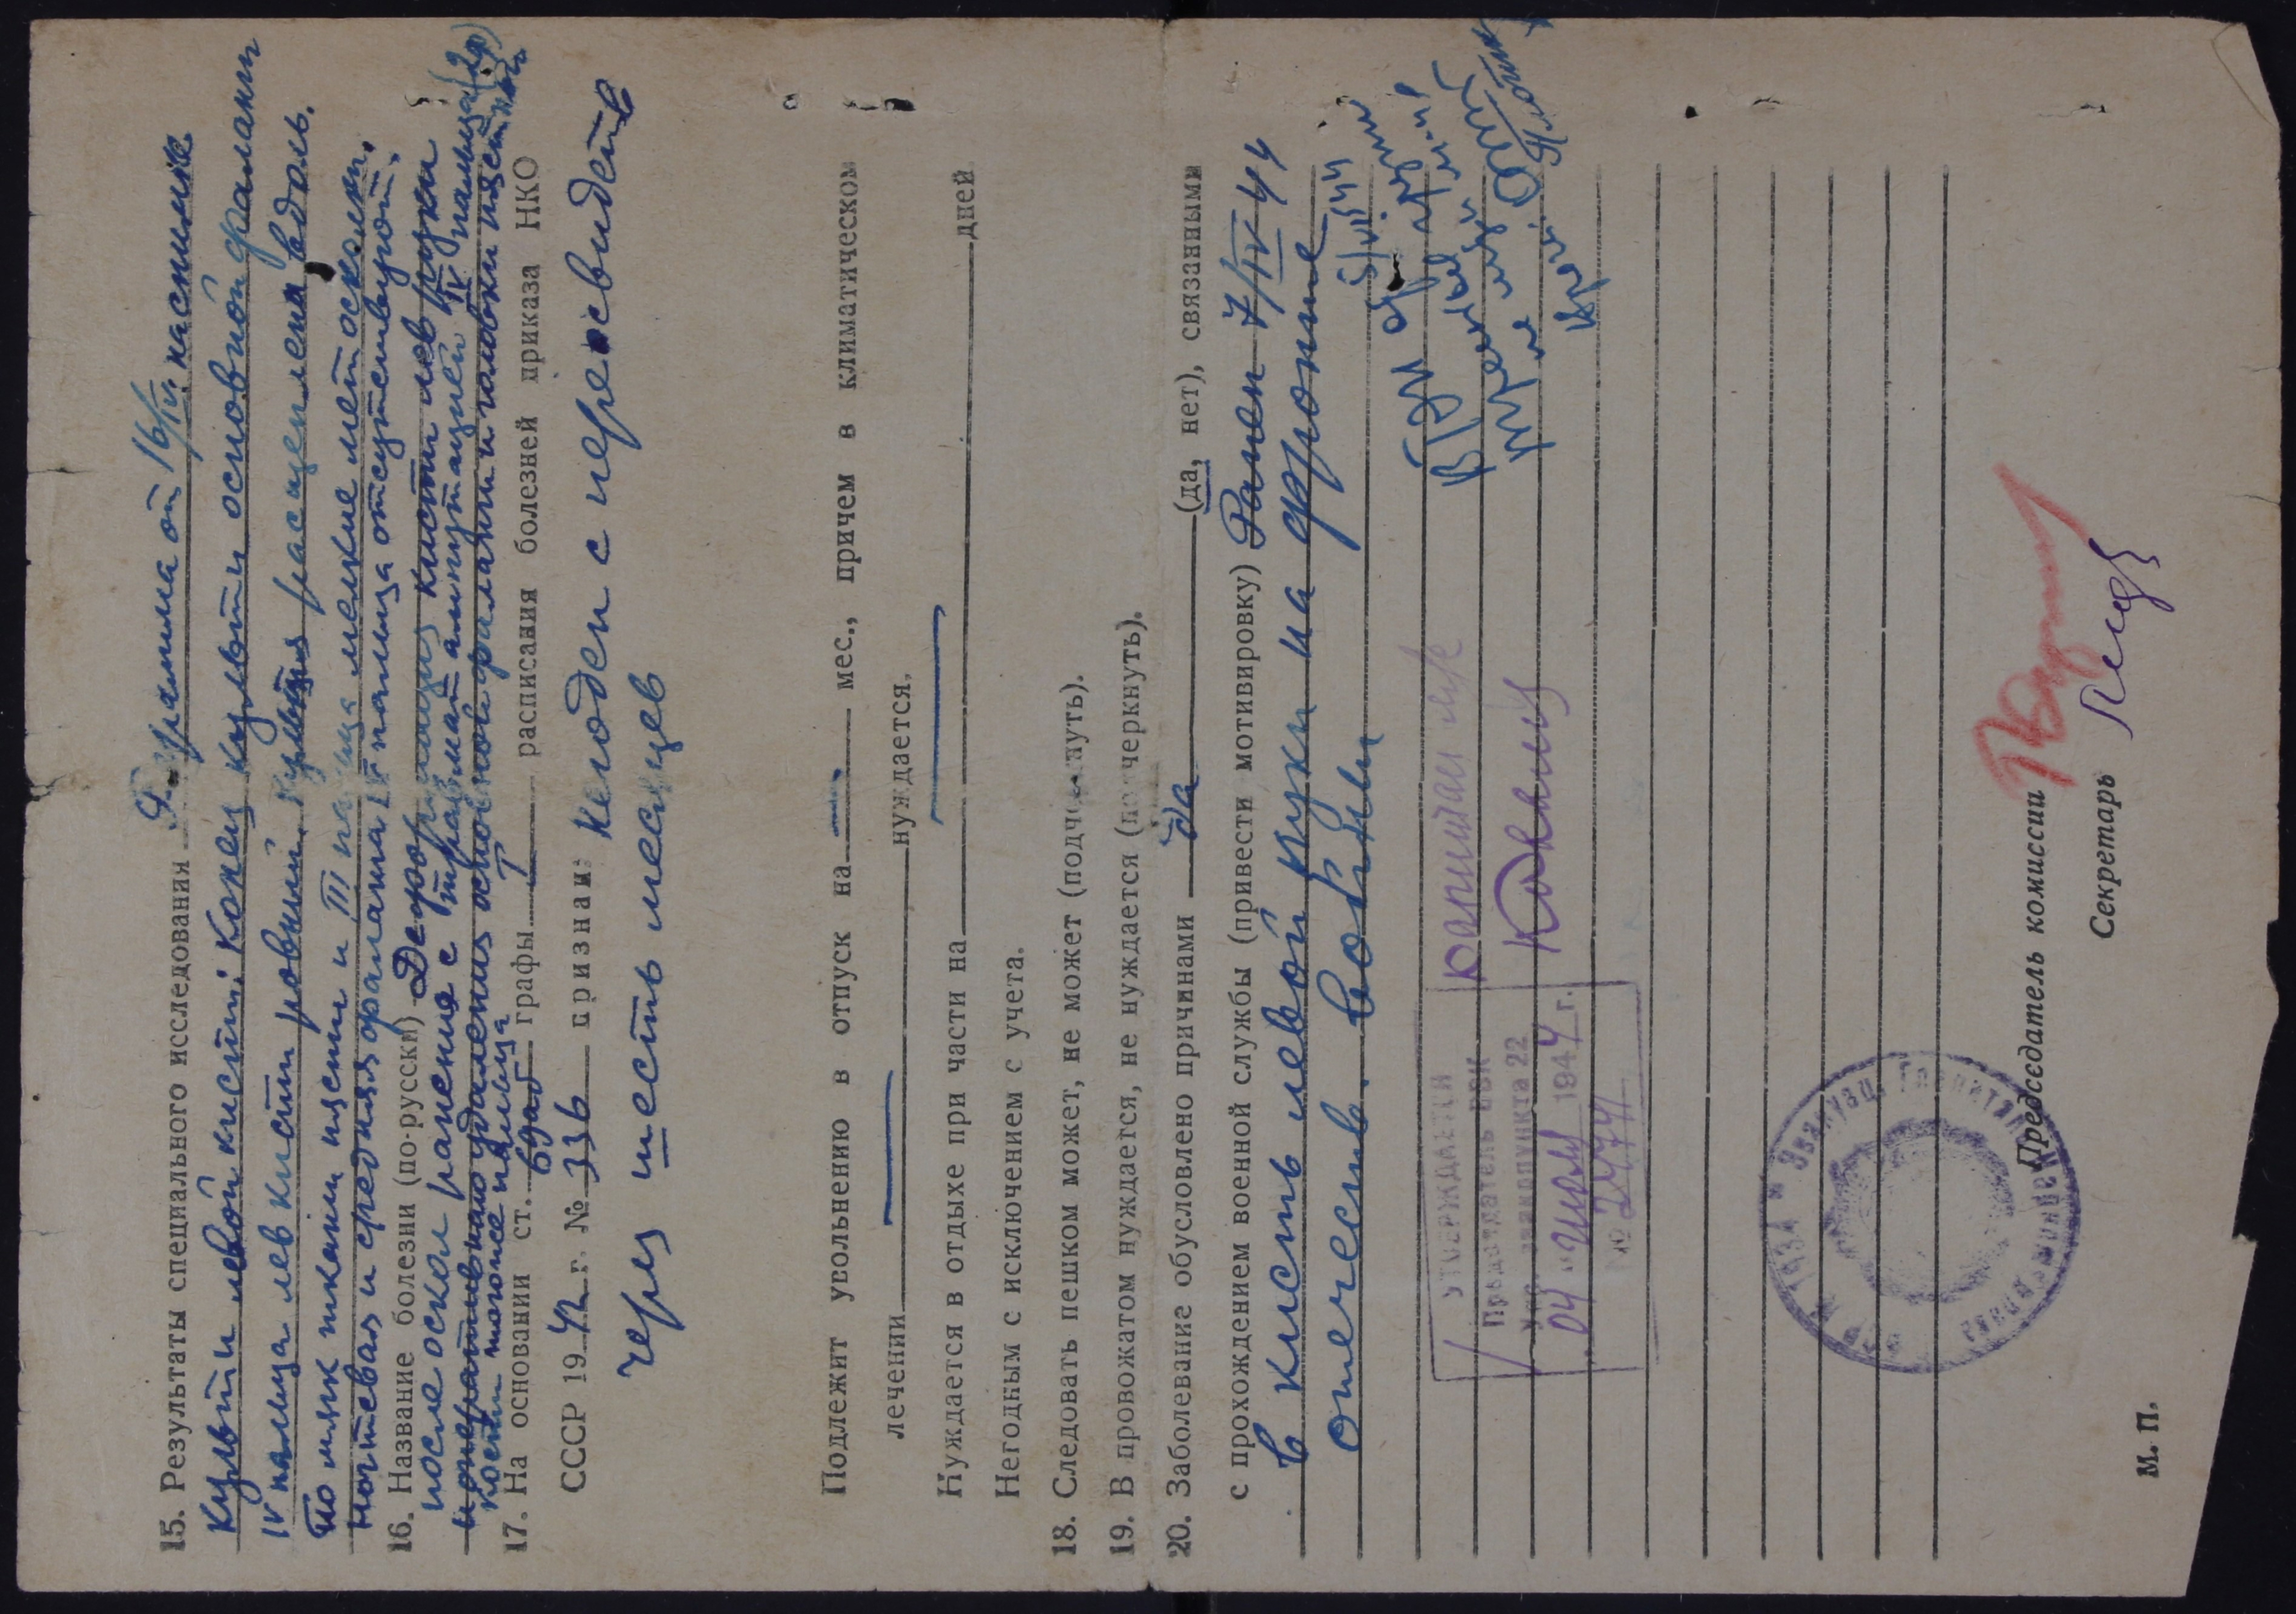 15. Результаты специального исследования Р-грамма от 16/IV. на снимке
культи левой кисти: Конец культи основной фаланги
IV пальца лев кисти ровный. Культя расщеплена вдоль.
По мягк тканям кисти и III пальца мелкие мет осколки.
Ногтевая и средняя фаланга IV пальца отсутствуют.
16. Название болезни (по-русски) Деформация кисти лев руки
после оскол ранения с травмат ампутацией IV пальца (2ф)
и оперативного удаления основной фаланги и головки пястной
кости того же пальца
17. На основании ст. 69аб графы I расписания болезней приказа НКО
СССР 1942 г. № 336 признан: Негоден с переосвидет
через шесть месяцев
Подлежит увольнению в отпуск на мес., причем в климатическом
лечении нуждается.
Нуждается в отдыхе при части на дней
Негодным с исключением с учета.
18. Следовать пешком может, не может (подчеркнуть).
19. В провожатом нуждается, не нуждается (подчеркнуть).
20. Заболевание обусловлено причинами да (да, нет), связанными
с прохождением военной службы (привести мотивировку) Ранен 7/IV 44
в кисть левой руки на фронте
отечеств. войны
УТВЕРЖДАЕТСЯ
Председатель ВВК
Упр. эвакпункта 22
04 июля 1944 г.
№ 2474
капитан м/с
М. П.
Председатель комиссии
Секретарь